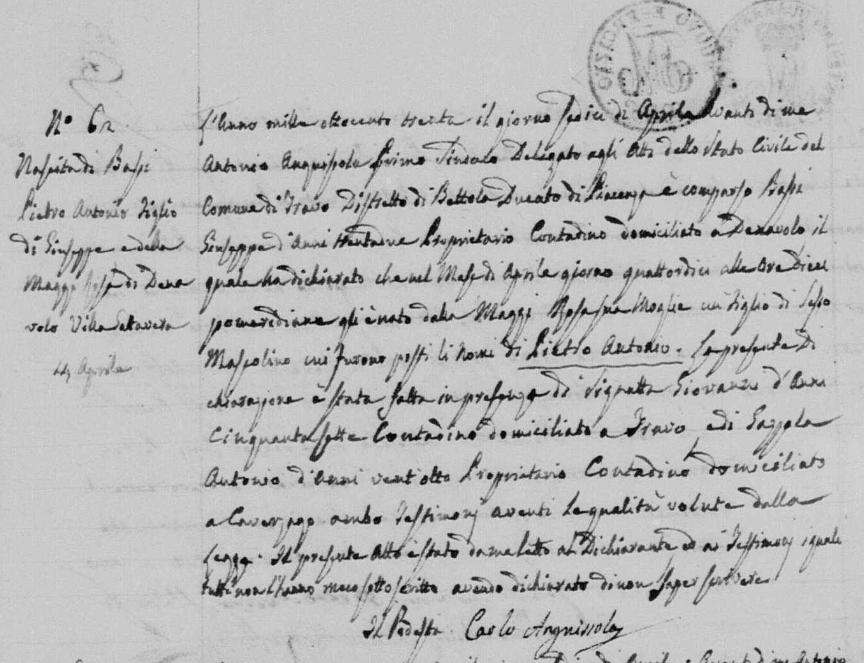 N.° 62
Nascita di Bassi
Pietro Antonio Figlio
di Giuseppe e della
Maggi Rosa di Dena
volo Villa
14 Aprile
L'Anno mille ottocento trenta il giorno sedici di Aprile Avanti di me
Antonio Anguissola Primo Sindaco Delegato agli Atti dello Stato Civile del
Comune di Travo Distretto di Bettola Ducato di Piacenza è comparso Bassi
Giuseppe d'Anni trentanove Proprietario Contadino domiciliato a Denavolo il
quale ha dichiarato che nel Mese di Aprile giorno quattordici alle Ore Dieci
pomeridiane gli è nato dalla Maggi Rosa sua Moglie un Figlio di Sesso
Mascolino cui furono posti li Nomi di Pietro Antonio. La presente Di
chiarazione è stata fatta in presenza di Giovanni d'Anni
Cinquanta sette Contadino domiciliato a Travo e di Gazzola
Antonio d'Anni vent'otto Proprietario Contadino domiciliato
a Caverzago ambo Testimonj aventi le qualità volute dalla
Legge. Il presente Atto è stato da me letto al Dichiarante ed ai Testimonj i quali
tutti non l'hanno meco sottoscritto avendo dichiarato di non saper scrivere
Il Podestà Carlo Anguissola